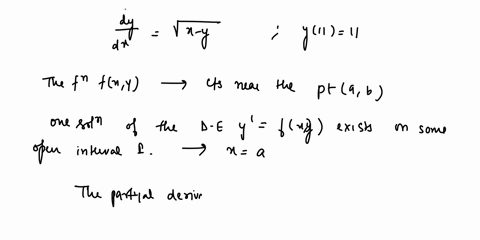 dy/dx = √x-y ; y(11) = 11
The fⁿ f(x,y) → cts near the pt (a, b)
one solⁿ of the D.E y' = f(x,y) exists on some
open interval I. → x = a
The partial deriv